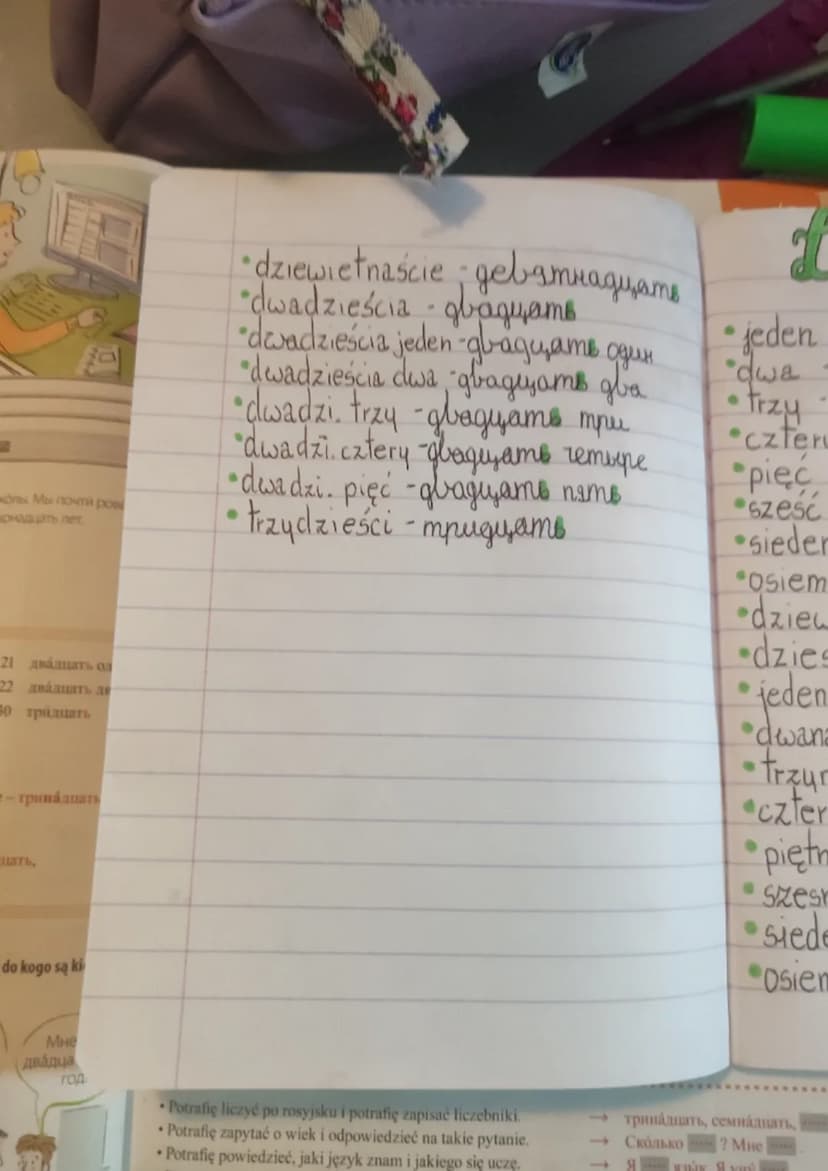 • dziewietnaście - девятнадцать
• dwadzieścia - двадцать
• dwadzieścia jeden - двадцать один
• dwadzieścia dwa - двадцать два
• dwadzi. trzy - двадцать три
• dwadzi. cztery - двадцать четыре
• dwadzi. pięć - двадцать пять
• trzydzieści - тридцать
• jeden
• dwa -
• trzy -
• czter
• pięć
• sześć
• sieder
• osiem
• dziew
• dzies
• jeden
• dwana
• trzyn
• czter
• piętn
• szesn
• siede
• osiem
Мы почти ров
лет.
21 двáдцать од
22 двáдцать дв
30 три́дцать
– трина́дцать
цать,
do kogo są ki
Мне
двáдца
год.
• Potrafię liczyć po rosyjsku i potrafię zapisać liczebniki. → трина́дцать, семна́дцать,
• Potrafię zapytać o wiek i odpowiedzieć na takie pytanie. → Ско́лько ? Мне
• Potrafię powiedzieć, jaki język znam i jakiego się uczę. → Я